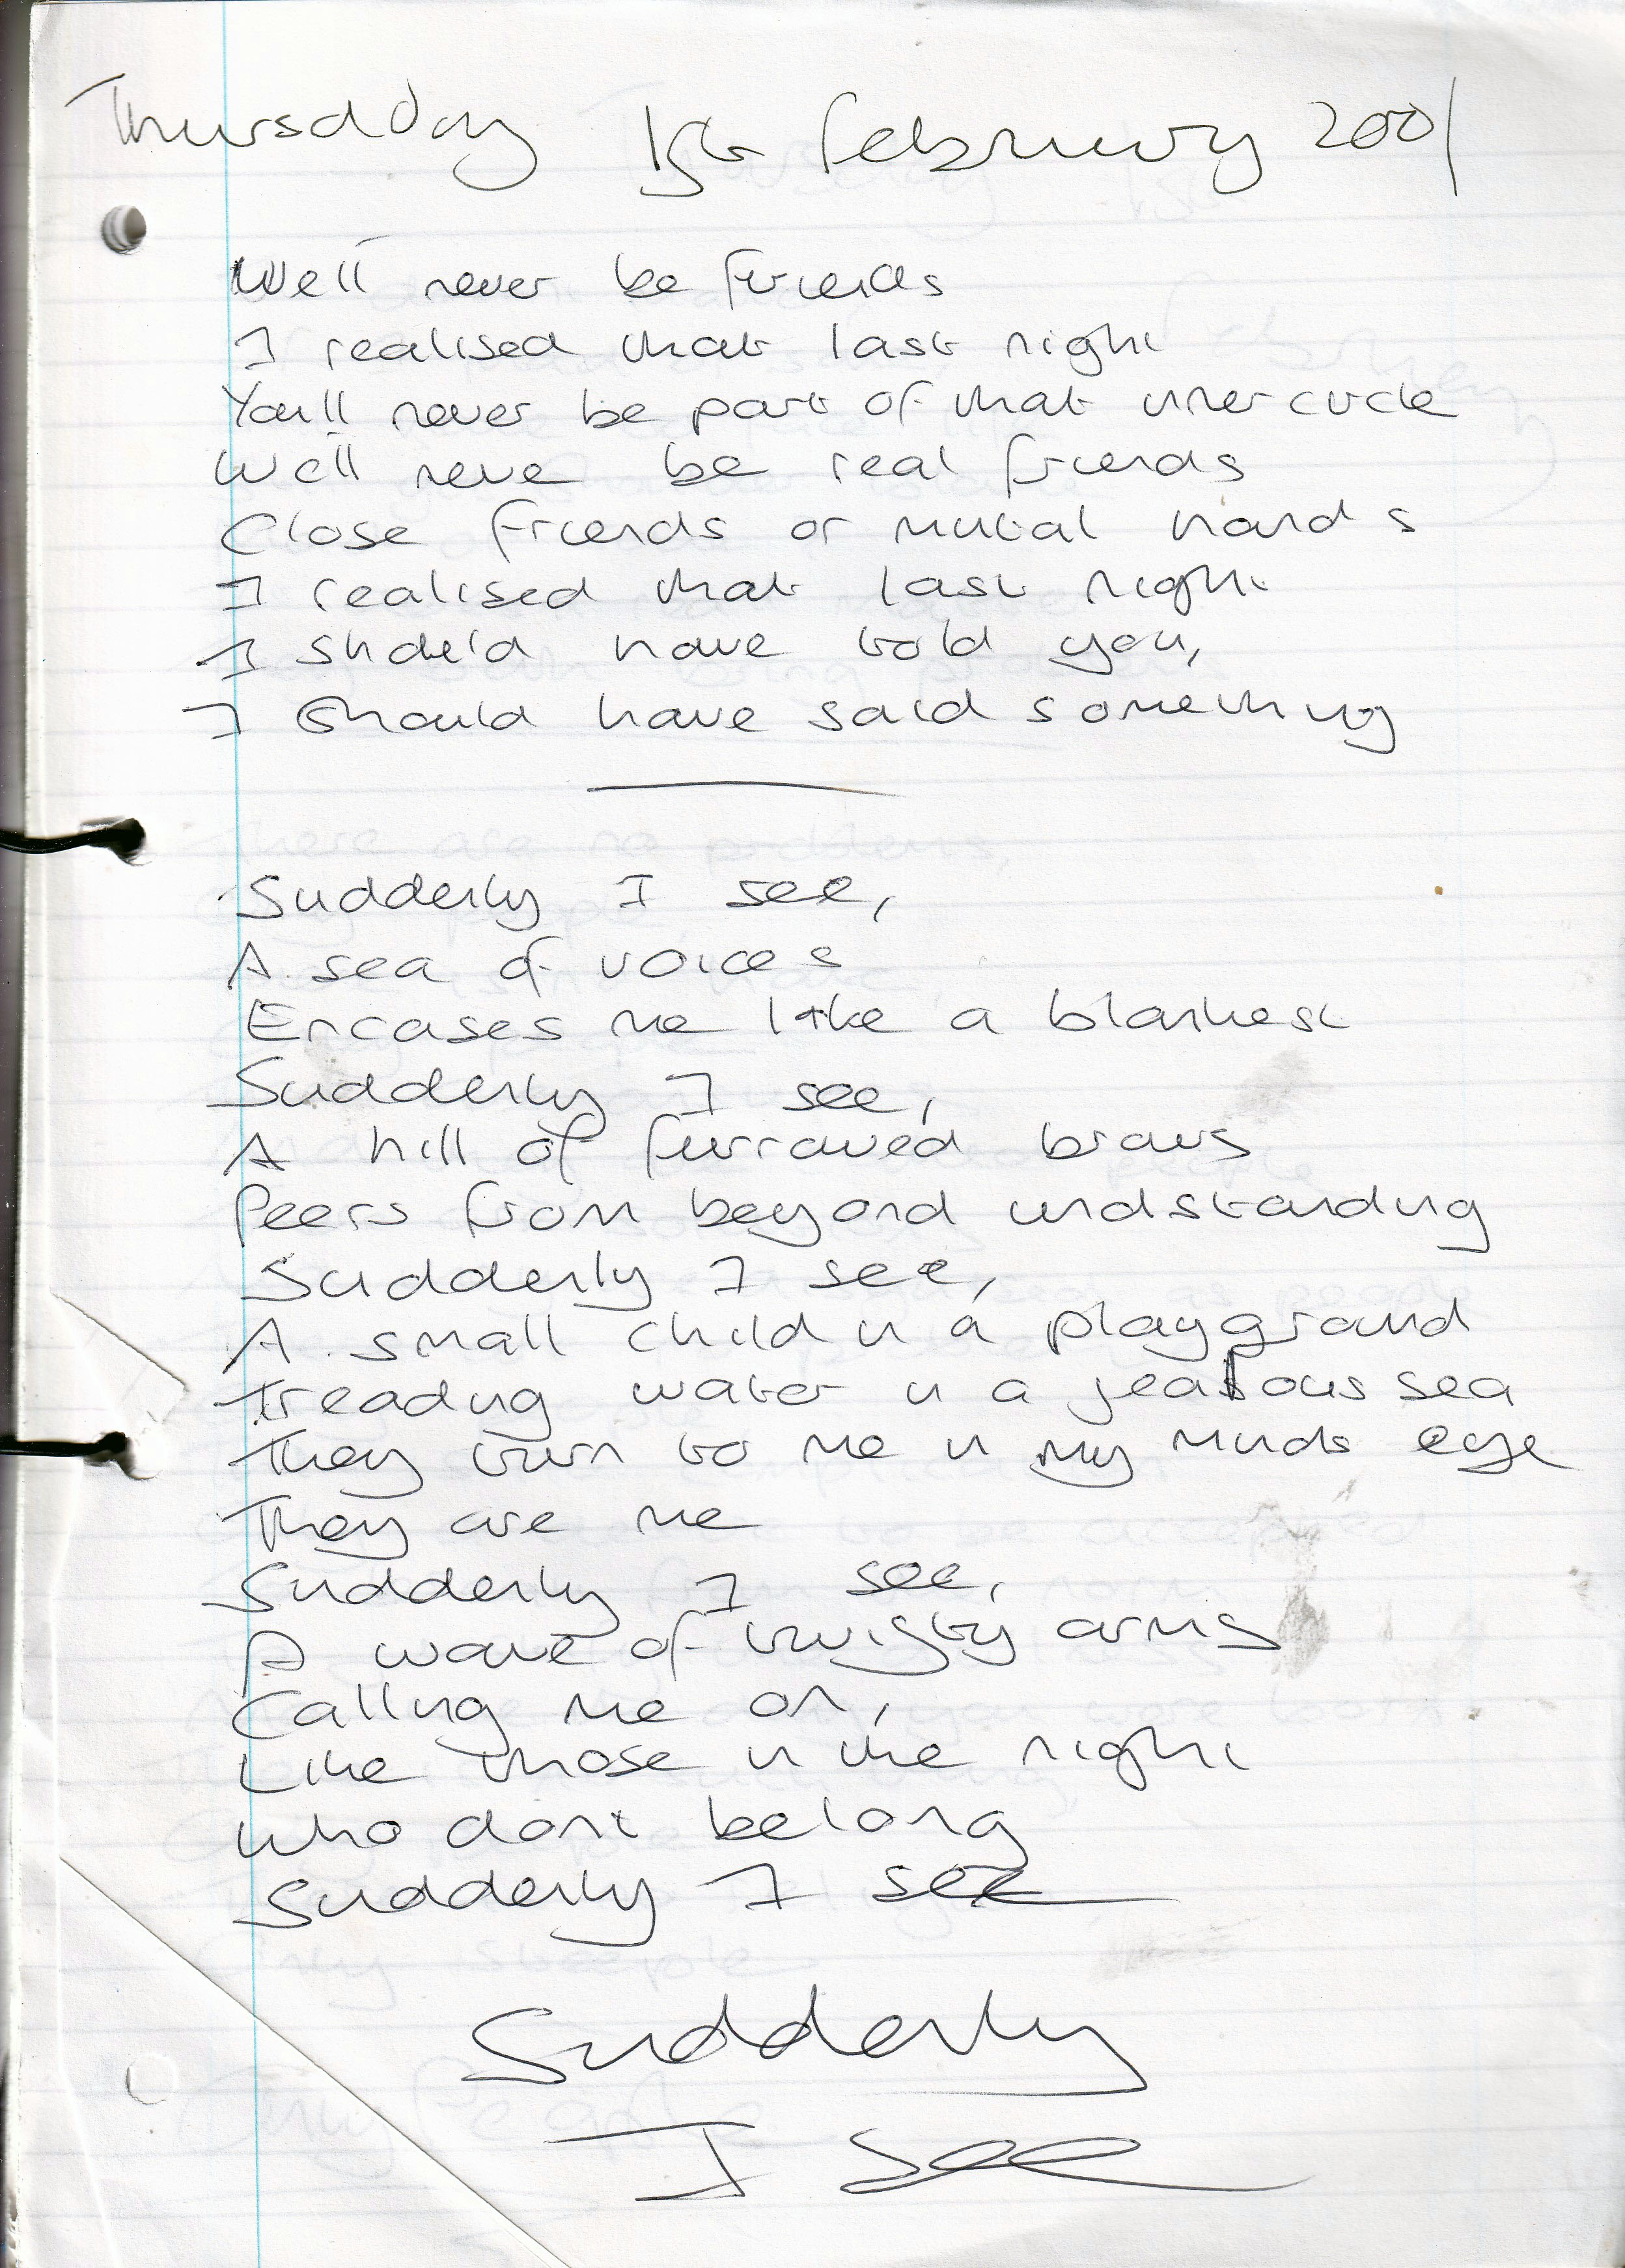 Thursday 15th February 2001
We'll never be friends
I realised that last night
You'll never be part of that inner circle
We'll neve be real friends
Close friends or mutal hands
I realised that last night
I should have told you,
I should have said something
Suddenly I see,
A sea of voices
Encases me like a blanket
Suddenly I see,
A hill of furrowed brows
Peers from beyond undstanding
Suddenly I see,
A small child in a playground
Treading water in a jealous sea
They turn to me in my minds eye
They are me
Suddenly I see,
A wave of twisty arms
Calling me on,
Like those in the night
Who dont belong
Suddenly I see
Suddenly
I see